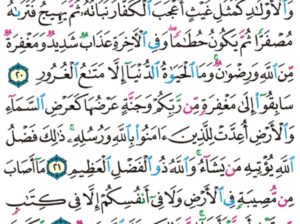 وَٱلۡأَوۡلَٰدِۖ كَمَثَلِ غَيۡثٍ أَعۡجَبَ ٱلۡكُفَّارَ نَبَاتُهُۥ ثُمَّ يَهِيجُ فَتَرَىٰهُ
مُصۡفَرّٗا ثُمَّ يَكُونُ حُطَٰمٗاۖ وَفِي ٱلۡأٓخِرَةِ عَذَابٞ شَدِيدٞ وَمَغۡفِرَةٞ
مِّنَ ٱللَّهِ وَرِضۡوَٰنٞۚ وَمَا ٱلۡحَيَوٰةُ ٱلدُّنۡيَآ إِلَّا مَتَٰعُ ٱلۡغُرُورِ ٢٠
سَابِقُوٓاْ إِلَىٰ مَغۡفِرَةٖ مِّن رَّبِّكُمۡ وَجَنَّةٍ عَرۡضُهَا كَعَرۡضِ ٱلسَّمَآءِ
وَٱلۡأَرۡضِ أُعِدَّتۡ لِلَّذِينَ ءَامَنُواْ بِٱللَّهِ وَرُسُلِهِۦۚ ذَٰلِكَ فَضۡلُ
ٱللَّهِ يُؤۡتِيهِ مَن يَشَآءُۚ وَٱللَّهُ ذُو ٱلۡفَضۡلِ ٱلۡعَظِيمِ ٢١ مَآ أَصَابَ
مِن مُّصِيبَةٖ فِي ٱلۡأَرۡضِ وَلَا فِيٓ أَنفُسِكُمۡ إِلَّا فِي كِتَٰبٖ